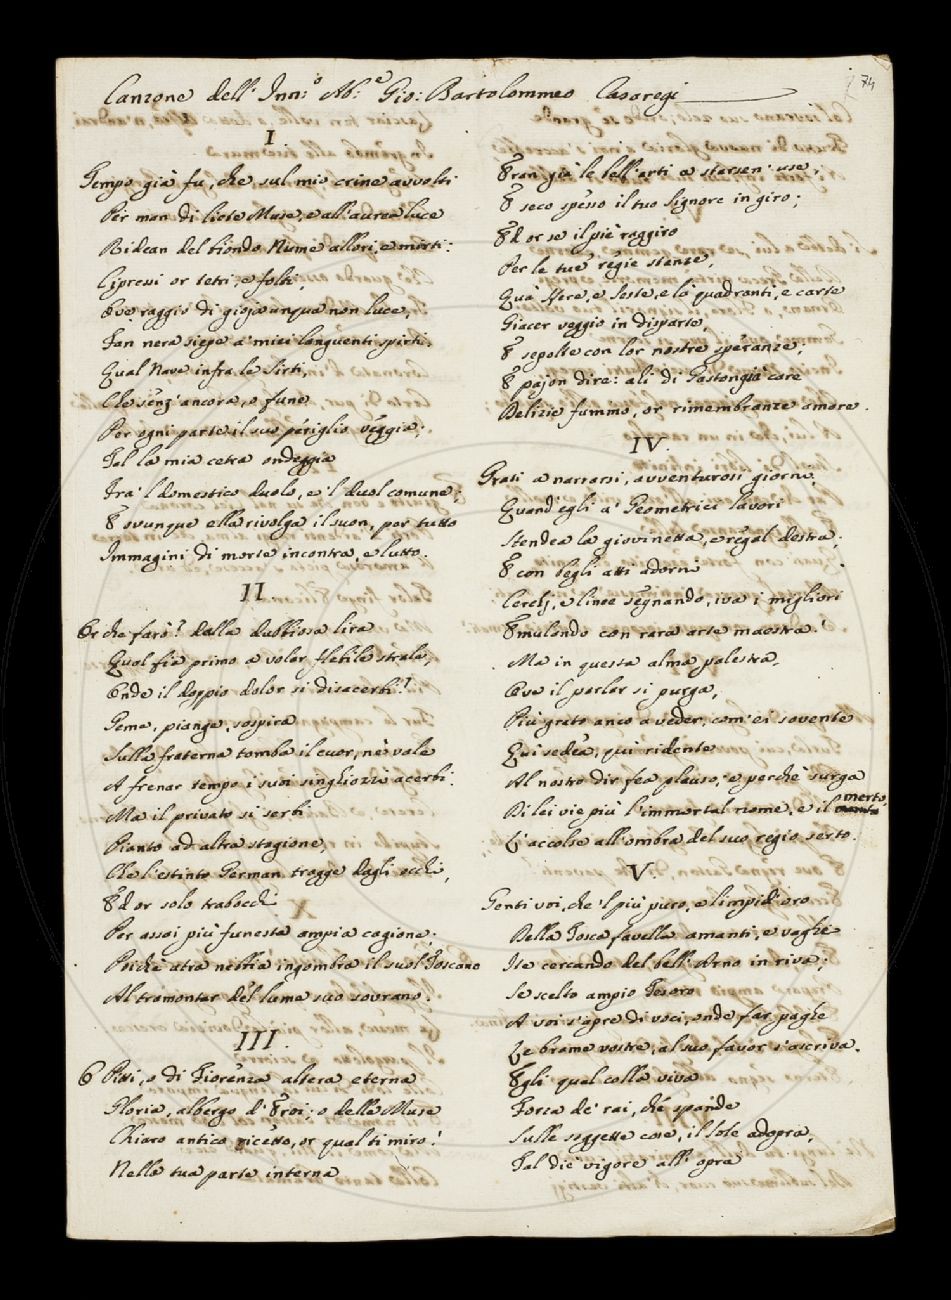 74
Canzone dell' Inn:o Ab:e Gio: Bartolommeo Casaregi
I.
Tempo già fu, che sul mio crine avvolti
Per man di liete Muse, e all'aurea luce
Ridean del biondo Nume allori, e mirti:
Cipressi or tetri, e folti,
Ove raggio di gioja unqua non luce,
Fan nera siepe a' miei languenti spirti.
Qual Nave infra le Sirti,
Che senz'ancora, o fune
Per ogni parte il suo periglio veggia;
Tal la mia cetra ondeggia
Tra 'l domestico duolo, e 'l duol comune;
E ovunque ella rivolga il suon, per tutto
Immagini di morte incontra, e lutto.
II.
Or che farò? Dalla dubbiosa lira
Qual fia primo a volar flebile strale,
Onde il doppio dolor si disacerbi?
Geme, piange, sospira
Sulla fraterna tomba il cuor, nè vale
A frenar tempo i suoi singhiozzi acerbi.
Ma il privato si serbi
Pianto ad altra stagione,
Che l'estinto German tragge dagli occhi,
Ed or solo trabocchi
Per assai più funesta ampia cagione;
Poichè atra nebbia ingombra il suol Toscano
Al tramontar del lume suo sovrano.
III.
O Pitti, o di Fiorenza altera eterna
Gloria, albergo d'Eroi; o delle Muse
Chiaro antico ricetto, or qual ti miro!
Nella tua parte interna
Eran già le bell'arti a starsen' use;
E seco spesso il tuo Signore in giro;
Ed or se il piè raggiro
Per le tue regie stanze,
Quà sfere, e seste, e là quadranti, e carte
Giacer veggio in disparte,
E sepolte con lor nostre speranze;
E pajon dire: ali di Gaston già care
Delizie fummo, or rimembranze amare.
IV.
Grati a narrarsi, avventurosi giorni,
Quand'egli a' Geometrici lavori
Stendea la giovinetta, e regal destra;
E con begli atti adorni
Cerchj, e linee segnando, iva i migliori
Emulando con rara arte maestra!
Ma in questa alma palestra,
Ove il parlar si purga,
Più grato anco a veder, com'ei sovente
Qui sedea, qui ridente
Al nostro dir fea plauso; e perchè surga
Di lei vie più l'immortal nome, e il merto,
L'accolse all'ombra del suo regio serto.
V.
Genti voi, che 'l più puro, e limpid'oro
Della Tosca favella amanti, e vaghe
Ite cercando del bell'Arno in riva;
Se scelto ampio Tesoro
A voi s'apre di voci, onde far paghe
Le brame vostre, al suo favor s'ascriva.
Egli quel colla viva
Forza de' rai, che spande
Sulle soggette cose, il Sole adopra,
Tal diè vigore all'opra